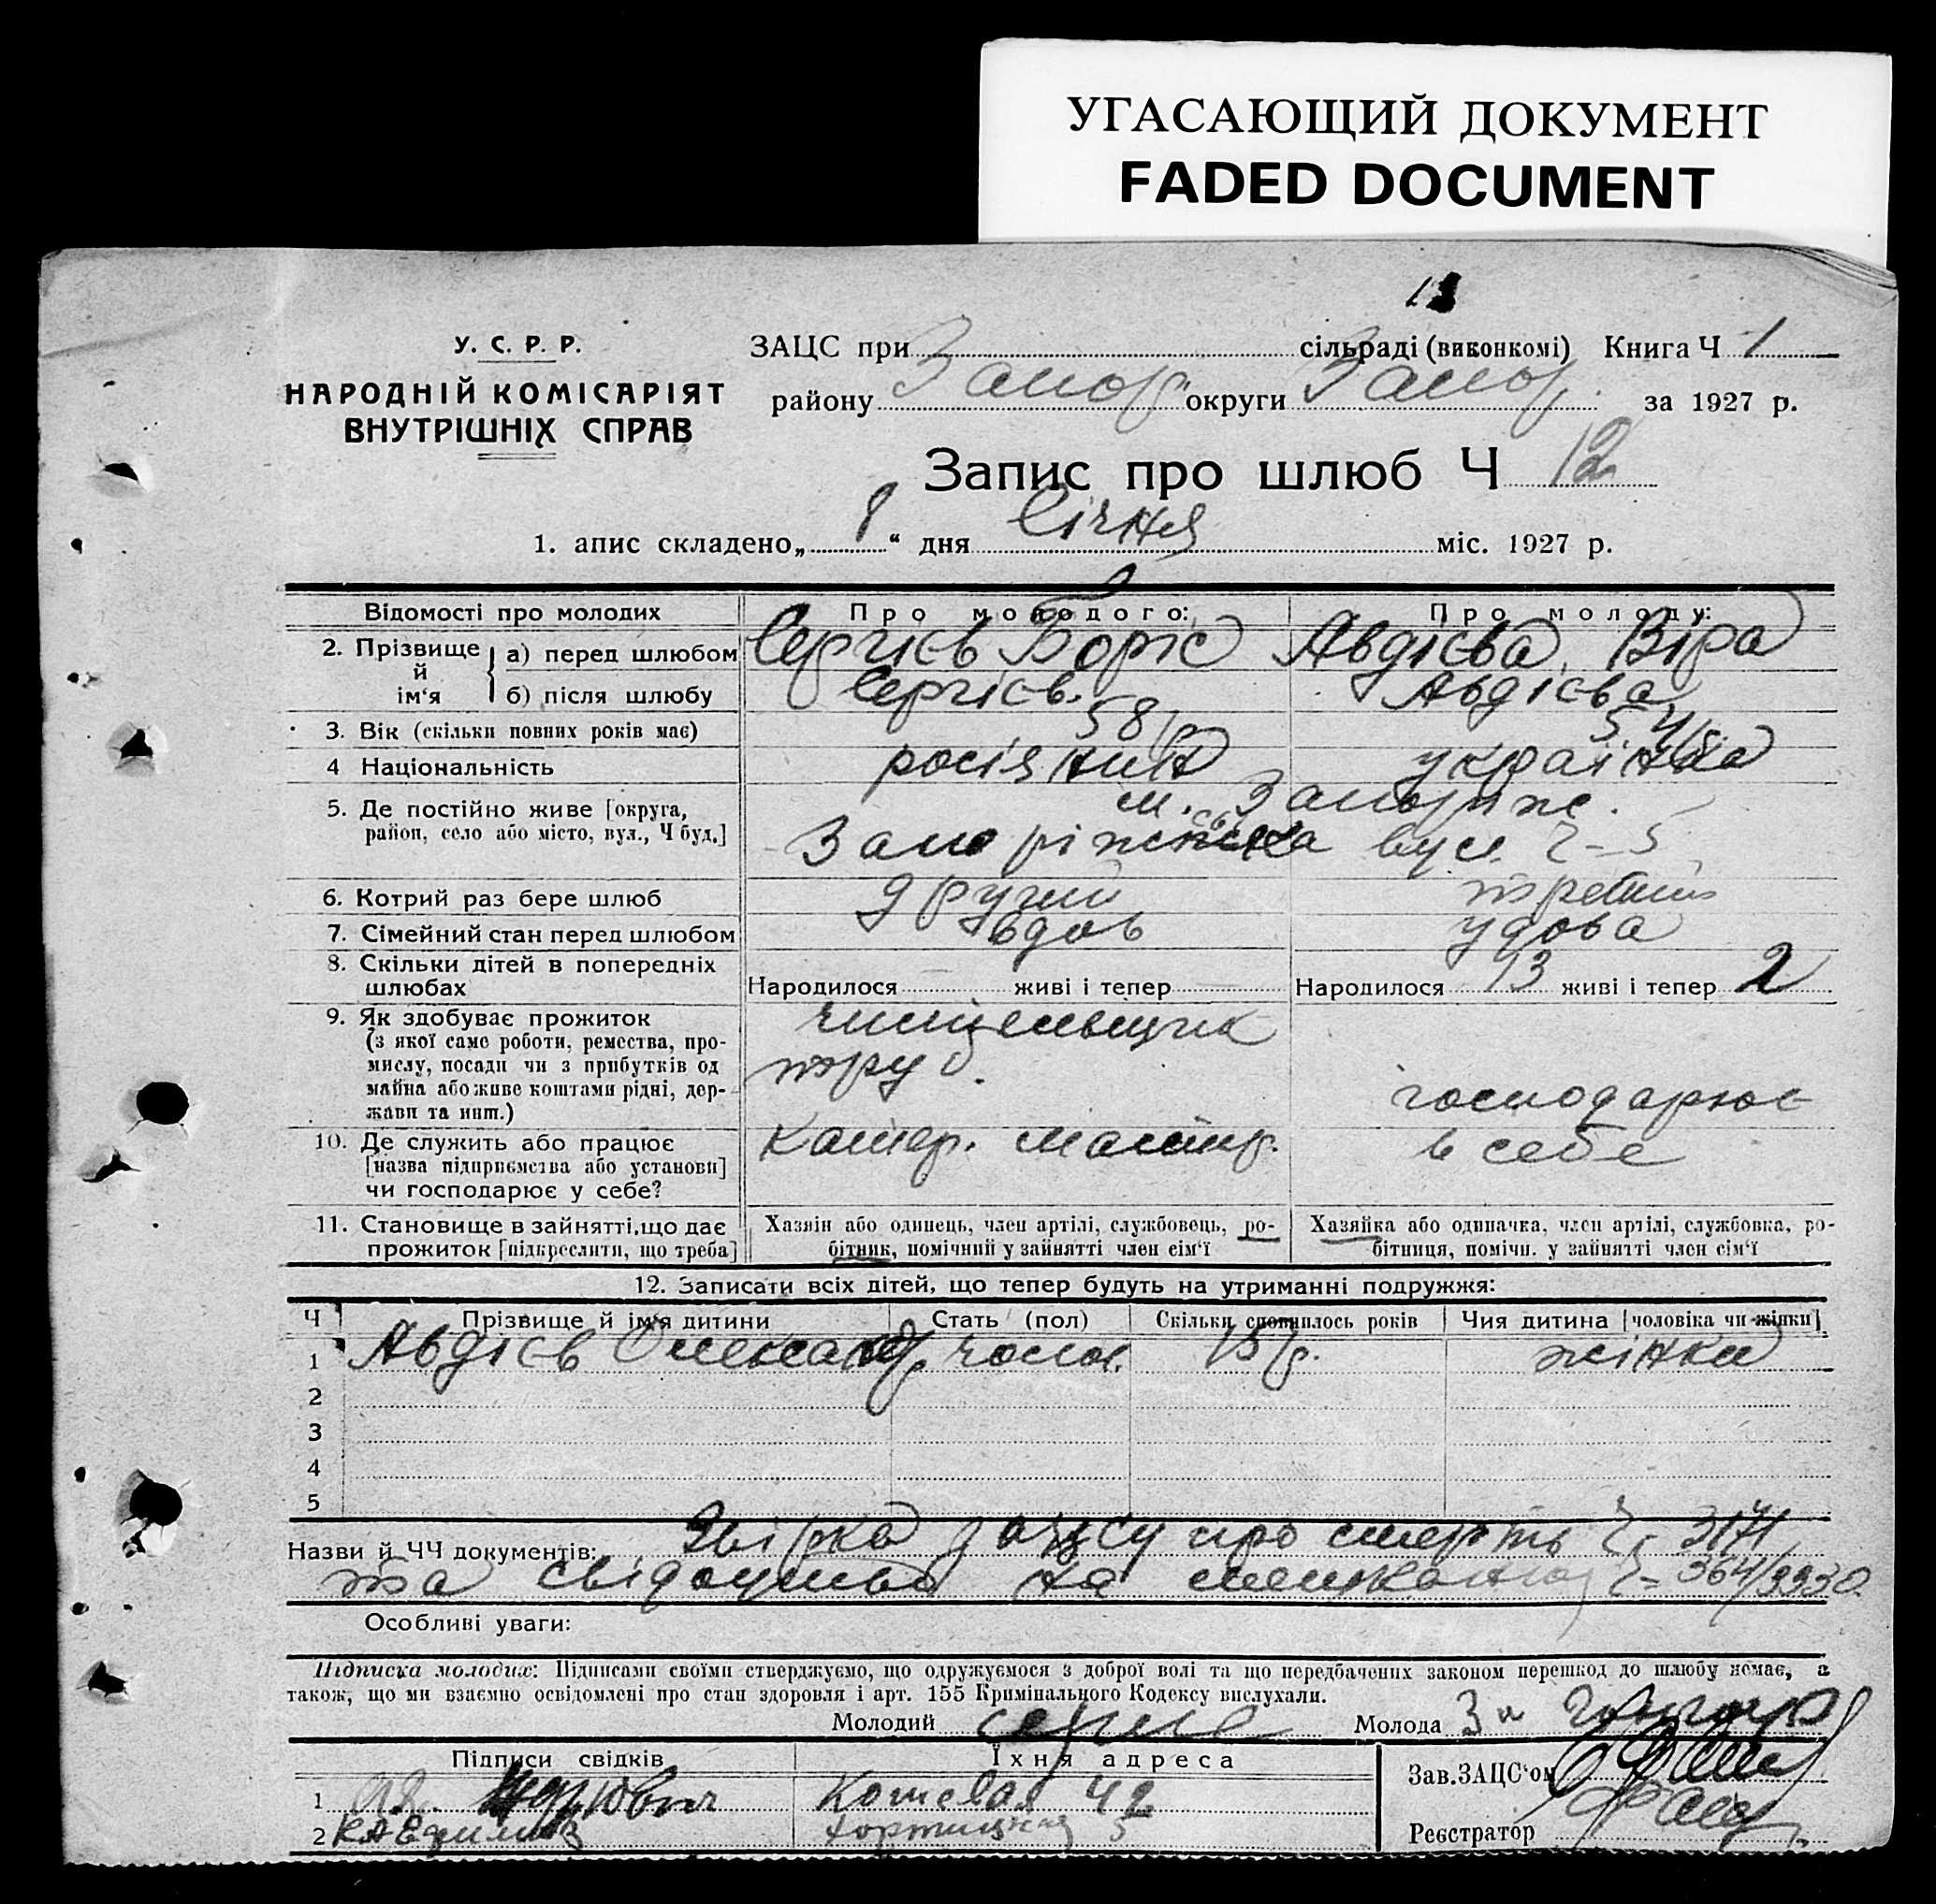 УГАСАЮЩИЙ ДОКУМЕНТ
FADED DOCUMENT
У. С. Р. Р.
НАРОДНІЙ КОМІСАРІЯТ
ВНУТРІШНІХ СПРАВ
ЗАЦС при сільраді (виконкомі) Книга Ч 1
району Запор округи Запор. за 1927 р.
Запис про шлюб Ч 12
1. апис складено „ 8 “ дня Січня міс. 1927 р.
Відомості про молодих Про молодого: Про молоду:
2. Прізвище й ім‘я а) перед шлюбом Сергієв Боріс Авдієва Віра
б) після шлюбу Сергієв. Авдієва
3. Вік (скільки повних років має) 58 р 54 р
4 Національність росіянин українка
5. Де постійно живе [округа, м. Запоріжж.
район, село або місто, вул., Ч буд.] Запоріжська вул. Ч-5
6. Котрий раз бере шлюб другий третий
7. Сімейний стан перед шлюбом вдов удова
8. Скільки дітей в попередніх
шлюбах Народилося живі і тепер Народилося 13 живі і тепер 2
9. Як здобуває прожиток
(з якої саме роботи, ремества, про-
мислу, посади чи з прибутків од труб.
майна або живе коштами рідні, дер-
жави та инш.) господарює
10. Де служить або працює в себе
[назва підприємства або установи]
чи господарює у себе?
11. Становище в зайнятті, що дає Хазяін або одинець, член артілі, службовець, ро- Хазяйка або одиначка, член артілі, службовка, ро-
прожиток [підкреслити, що треба] бітник, помічний у зайнятті член сім‘ї бітниця, помічн. у зайнятті член сім‘ї
12. Записати всіх дітей, що тепер будуть на утриманні подружжя:
Ч Прізвище й ім‘я дитини Стать (пол) Скільки сповнилось років Чия дитина [чоловіка чи жінки]
1 Авдієв Олександ. чолов. 15 р. жінки
2
3
4
5
Назви й ЧЧ документів: Звірка зацсу про смерть Ч- 3171
та свідоцтво на мешкання Ч- 364/9930
Особливі уваги:
Підписка молодих: Підписами своїми стверджуємо, що одружуємося з доброї волі та що передбачених законом перешкод до шлюбу немає, а
також, що ми взаємно освідомлені про стан здоровля і арт. 155 Кримінального Кодексу вислухали.
Молодий Молода
Підписи свідків Їхня адреса Зав. ЗАЦС‘ом
1 Кошевая 42
2 Хортицкая 5 Реєстратор